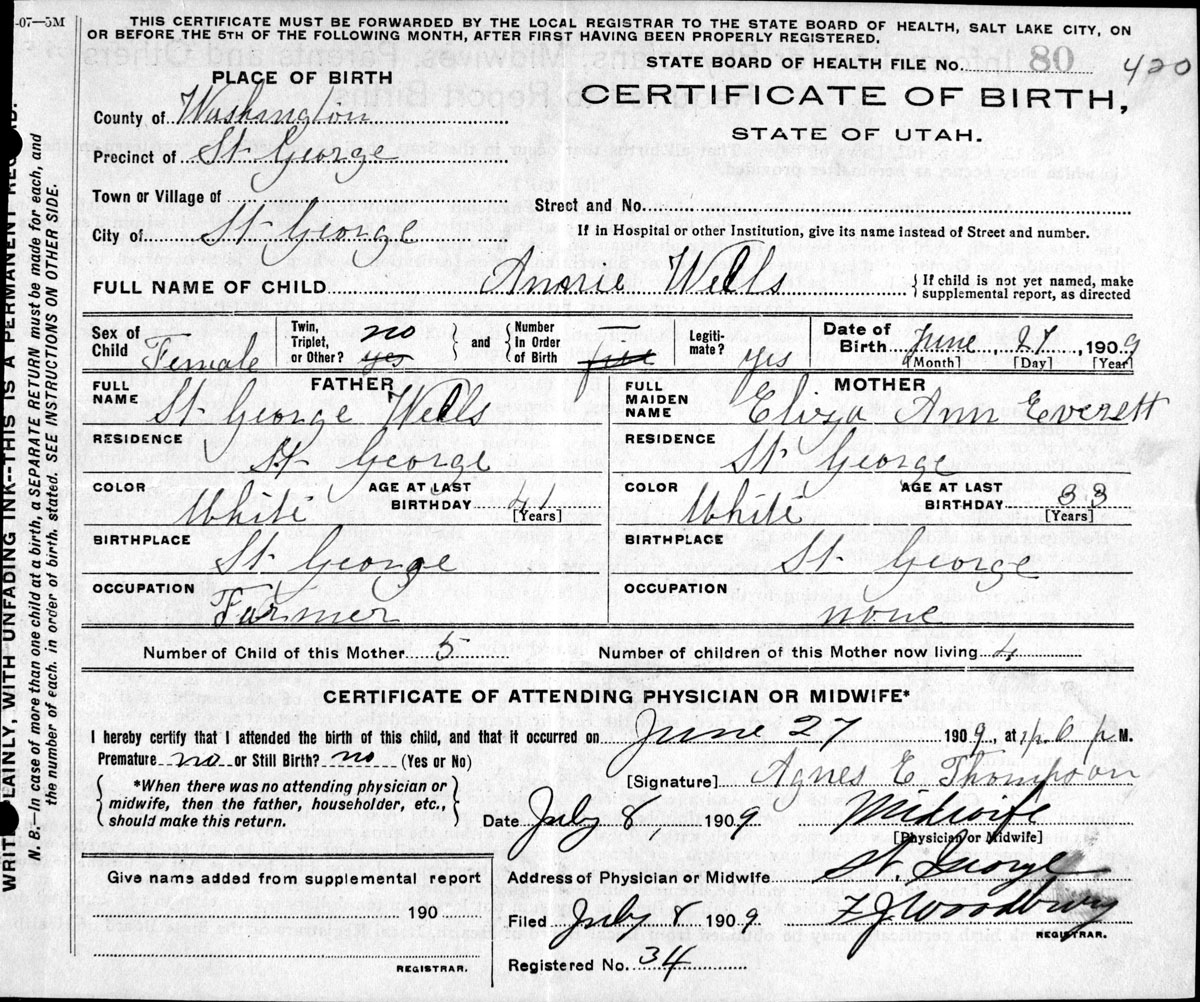 -07—5M
THIS CERTIFICATE MUST BE FORWARDED BY THE LOCAL REGISTRAR TO THE STATE BOARD OF HEALTH, SALT LAKE CITY, ON
OR BEFORE THE 5TH OF THE FOLLOWING MONTH, AFTER FIRST HAVING BEEN PROPERLY REGISTERED.
STATE BOARD OF HEALTH FILE No. 80 420
PLACE OF BIRTH
CERTIFICATE OF BIRTH,
STATE OF UTAH.
County of Washington
Precinct of St George
Town or Village of
Street and No.
City of St George
If in Hospital or other Institution, give its name instead of Street and number.
FULL NAME OF CHILD Wells
If child is not yet named, make supplemental report, as directed
Sex of Child Female
Twin, Triplet, or Other? no yes
and Number In Order of Birth —
Legiti-mate? yes
Date of Birth June, 27, 1909
[Month] [Day] [Year]
FATHER
FULL NAME St George Wells
RESIDENCE St George
COLOR White AGE AT LAST BIRTHDAY 41 [Years]
BIRTHPLACE St George
OCCUPATION Farmer
MOTHER
FULL MAIDEN NAME Eliza Ann Everett
RESIDENCE St George
COLOR White AGE AT LAST BIRTHDAY 33 [Years]
BIRTHPLACE St George
OCCUPATION none
Number of Child of this Mother 5 Number of children of this Mother now living 4
CERTIFICATE OF ATTENDING PHYSICIAN OR MIDWIFE*
I hereby certify that I attended the birth of this child, and that it occurred on June 27 1909, at P.M.
Premature no or Still Birth? no (Yes or No)
*When there was no attending physician or
midwife, then the father, householder, etc.,
should make this return.
[Signature] Agnes E Thompson
Date July 8, 1909 Midwife
[Physician or Midwife]
Give name added from supplemental report
190
REGISTRAR.
Address of Physician or Midwife St. George
Filed July 8 1909 F J Woodbury
REGISTRAR.
Registered No. 34
WRITE PLAINLY, WITH UNFADING INK--THIS IS A PERMANENT RECORD.
N. B.—In case of more than one child at a birth, a SEPARATE RETURN must be made for each, and
the number of each. in order of birth. stated. SEE INSTRUCTIONS ON OTHER SIDE.